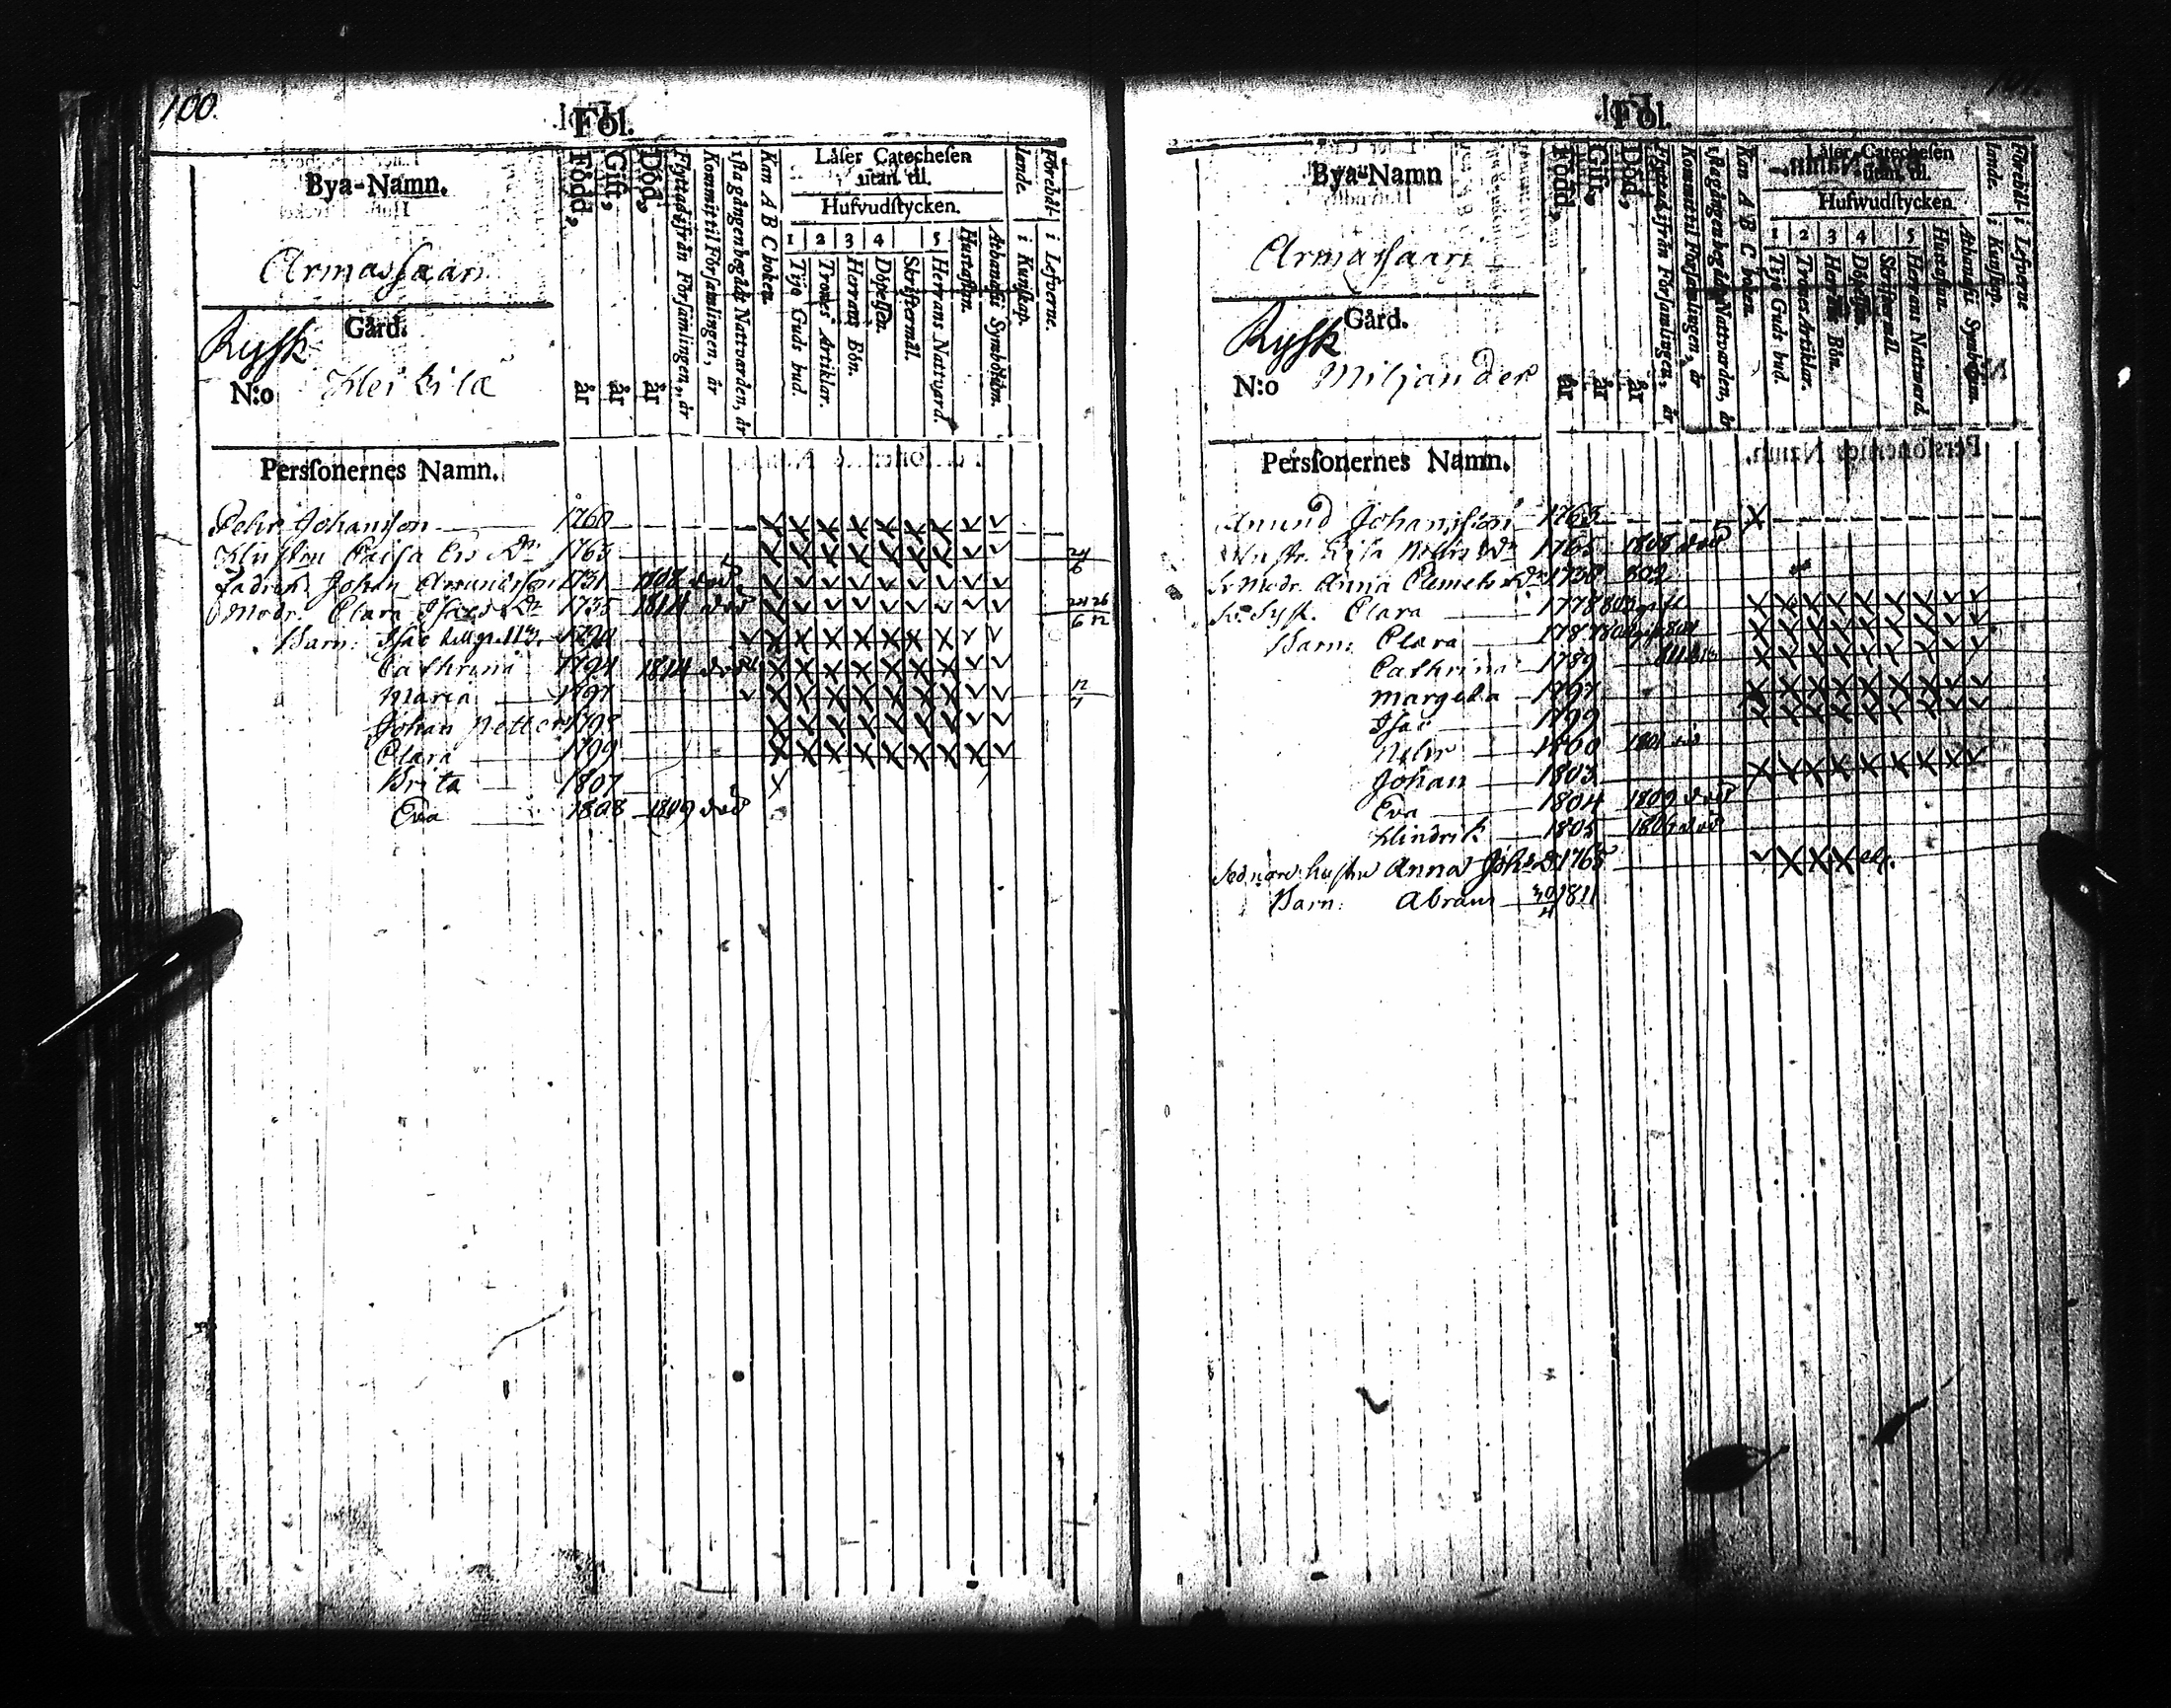 100.
Fol.
Bya-Namn.
Armassaari
Gård.
Rysk
N:o Heikilä
Född, år
Gift, år
Död, år
Flyttad ifrån Församlingen, år
Kommit til Församlingen, år
1sta gången begådt Nattvarden, år
Kan A B C boken.
Låser Catechesen
utan til.
Hufvudstycken.
1 2 3 4 5
Tijo Guds bud.
Trones Artiklar.
Herrans Bön.
Döpelsen.
Skriftermål.
Herrans Nattvard.
Hustaflan.
Athanasii Symbolum.
Förehållande.
i Kunskap.
i Lefverne.
Perssonernes Namn.
Pehr Johansson 1760
Hustru Caisa Ers Dr 1763
Johan Amundsson 1731 1808 död
Modr. Clara Isacs Dr 1735 1814 död
Barn: Isac 1790
Cathrina 1794 1814 död
Maria 1797
Johan Petter 1798
Clara 1799
Brita 1807
Eva 1808 1809 död
Fol.
Bya-Namn
Armassaari
Gård.
Rysk
N:o Miljander
Född, år
Gift, år
Död, år
Flyttad ifrån Församlingen, år
Kommit til Församlingen, år
1sta gången begådt Nattvarden, år
Kan A B C boken.
Låser Catechesen
utan til.
Hufwudstycken.
1 2 3 4 5
Tijo Guds bud.
Trones Artiklar.
Herrans Bön.
Döpelsen.
Skriftermål.
Herrans Nattvard.
Hustaflan.
Athanasii Symbolum.
Förehållande.
i Kunskap.
i Lefverne
Perssonernes Namn.
Amund Johansson 1763
Lisa Nils Dr 1765 1808 död
Modr. Anna Clemets Dr 1738 802
Syst. Clara 1778
Barn: Clara 1787
Cathrina 1789
Margeta 1797
Isac 1799
Pehr 1800 1801
Johan 1803
Eva 1804 1809 död
Hindrik 1805 död
Sednare hustru Anna Johs D 1768
Barn: Abram 30/4 1811